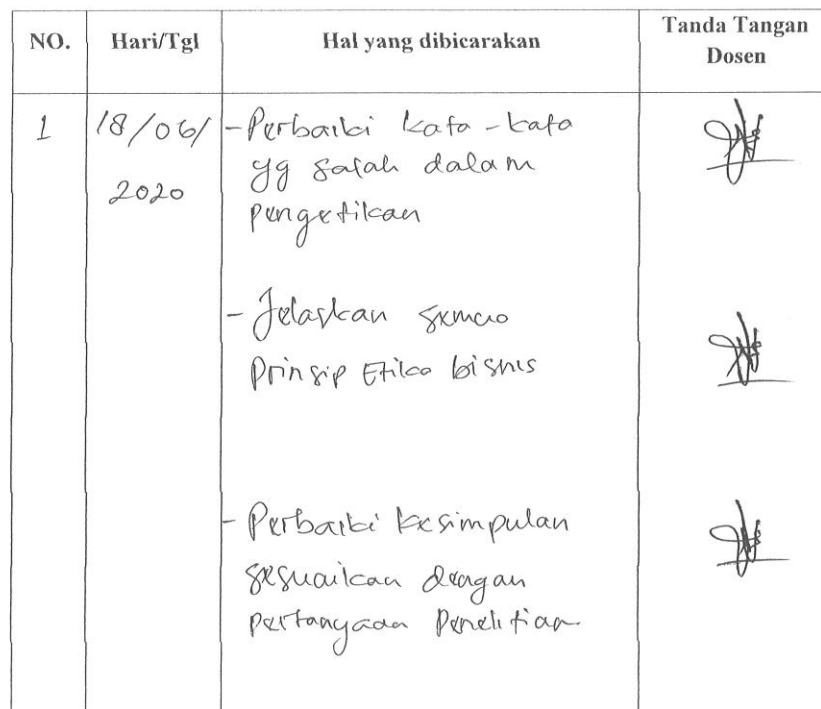 NO. Hari/Tgl Hal yang dibicarakan Tanda Tangan
Dosen
1 18/06/ - Perbaiki kata - kata
2020 yg salah dalam
pengetikan
- Jelaskan semua
Prinsip Etika bisnis
- Perbaiki kesimpulan
sesuaikan dengan
pertanyaan Penelitian